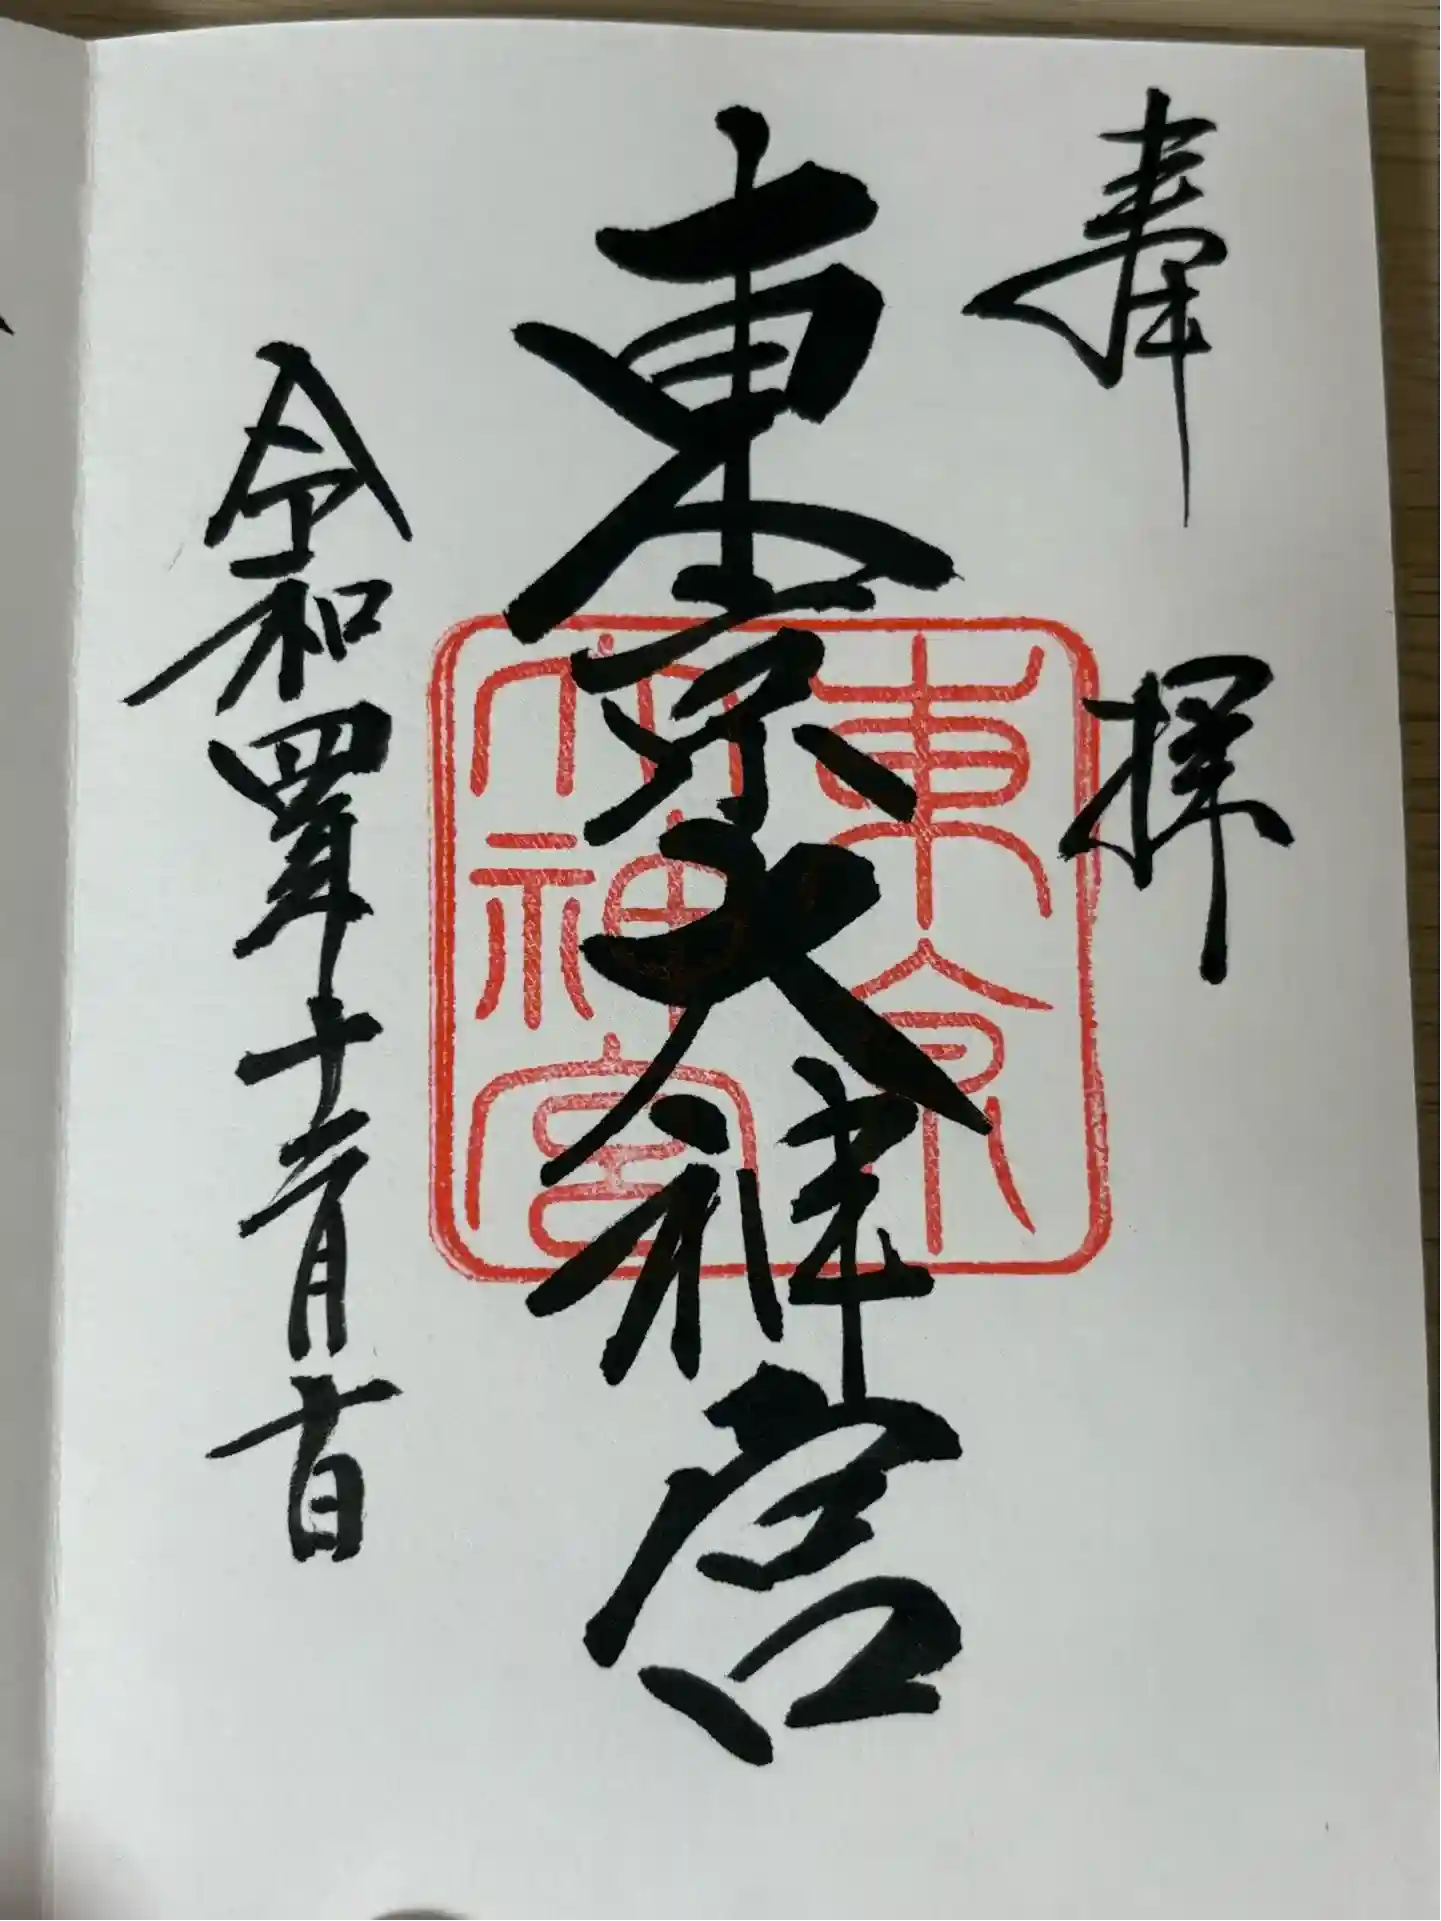 奉拝
東京大神宮
東京
大神宮
令和四年十二月